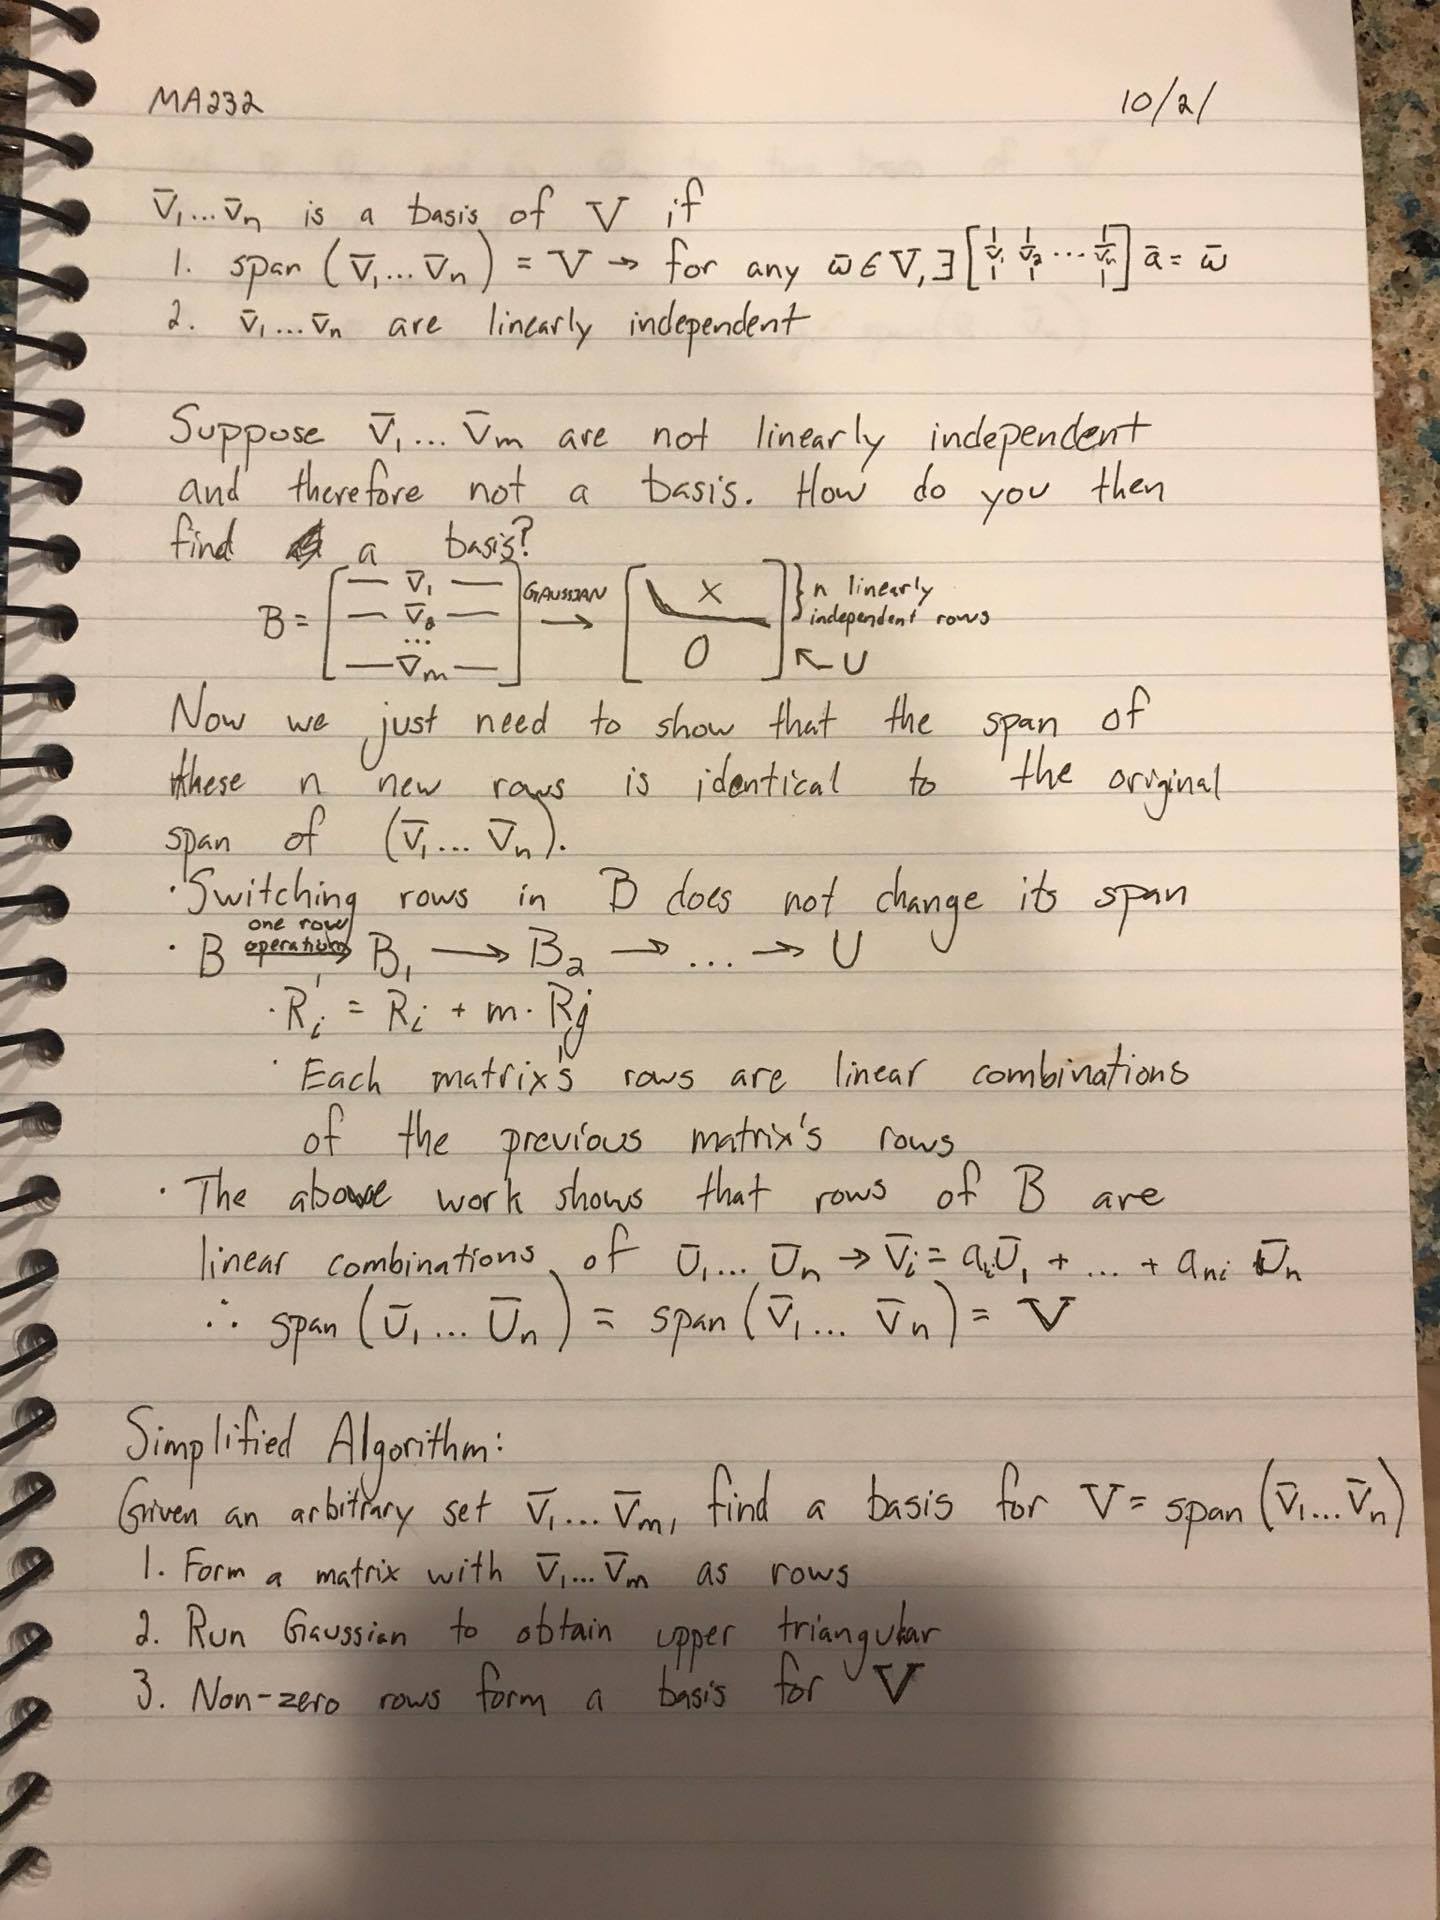 MA232 10/2/
v̄₁...v̄ₙ is a basis of V if
1. span (v̄₁...v̄ₙ) = V → for any w̄ ∈ V, ∃ [v̄₁ v̄₂ ... v̄ₙ] ā = w̄
2. v̄₁...v̄ₙ are linearly independent
Suppose v̄₁...v̄ₘ are not linearly independent
and therefore not a basis. How do you then
find a basis?
B = [— v̄₁ — — v̄₂ — ... — v̄ₘ —] GAUSSIAN → [X 0] } n linearly independent rows ↖ U
Now we just need to show that the span of
these n new rows is identical to the original
span of (v̄₁... v̄ₙ).
· Switching rows in B does not change its span
· B one row operation → B₁ → B₂ → ... → U
· Rᵢ' = Rᵢ + m · Rⱼ
· Each matrix's rows are linear combinations
of the previous matrix's rows
· The above work shows that rows of B are
linear combinations of Ū₁... Ūₙ → v̄ᵢ = a₁ᵢŪ₁ + ... + aₙᵢ Ūₙ
∴ span (Ū₁... Ūₙ) = span (v̄₁... v̄ₙ) = V
Simplified Algorithm:
Given an arbitrary set v̄₁... v̄ₘ, find a basis for V = span (v̄₁...v̄ₙ)
1. Form a matrix with v̄₁...v̄ₘ as rows
2. Run Gaussian to obtain upper triangular
3. Non-zero rows form a basis for V